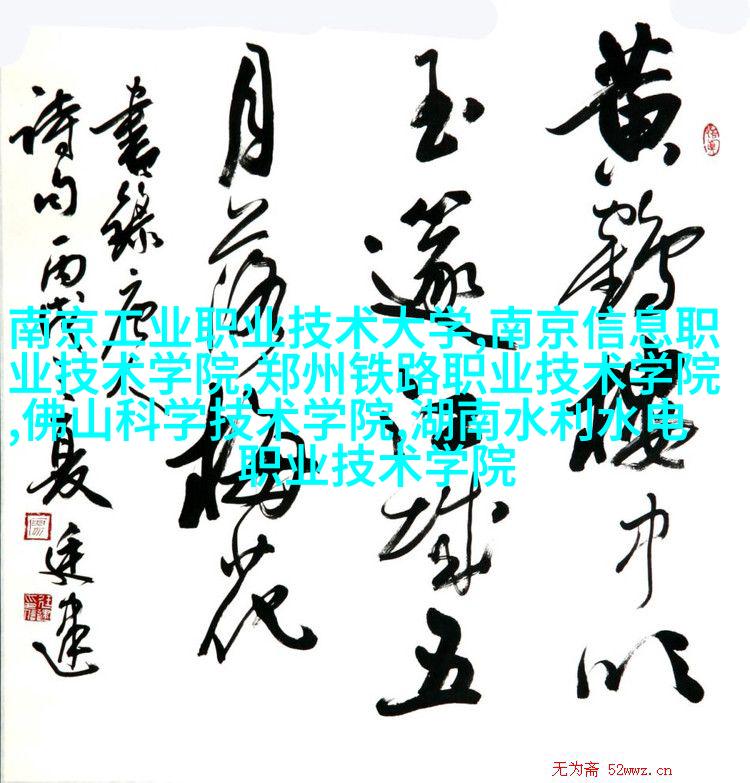 黄鶴樓中吹
玉篴江城五
月落梅花
書錄唐人
詩句丙戌之夏廷建
南京工业职业技术大学,南京信息职
业技术学院,郑州铁路职业技术学院
,佛山科学技术学院,湖南水利水电
职业技术学院
无为斋 52wwz.cn